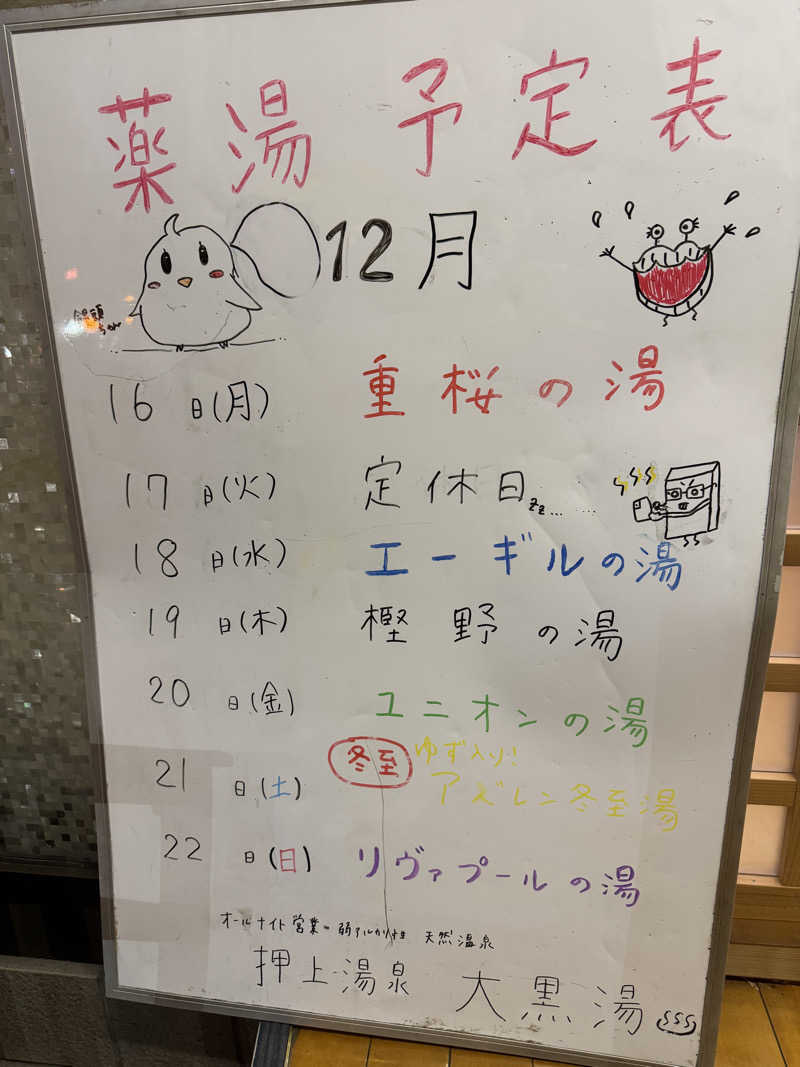 薬湯予定表
12月
饅頭ちゃん
16日(月) 重桜の湯
17日(火) 定休日zz...
18日(水) エーギルの湯
19日(木) 樫野の湯
20日(金) ユニオンの湯
21日(土) 冬至 ゆず入り!
アズレン冬至湯
22日(日) リヴァプールの湯
オールナイト営業 弱アルカリ性 天然温泉
押上温泉 大黒湯